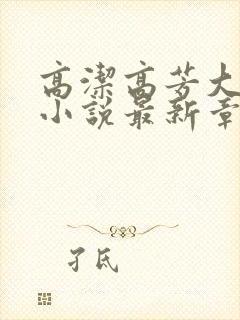 高潔高芳大
小說最新章
孑氏